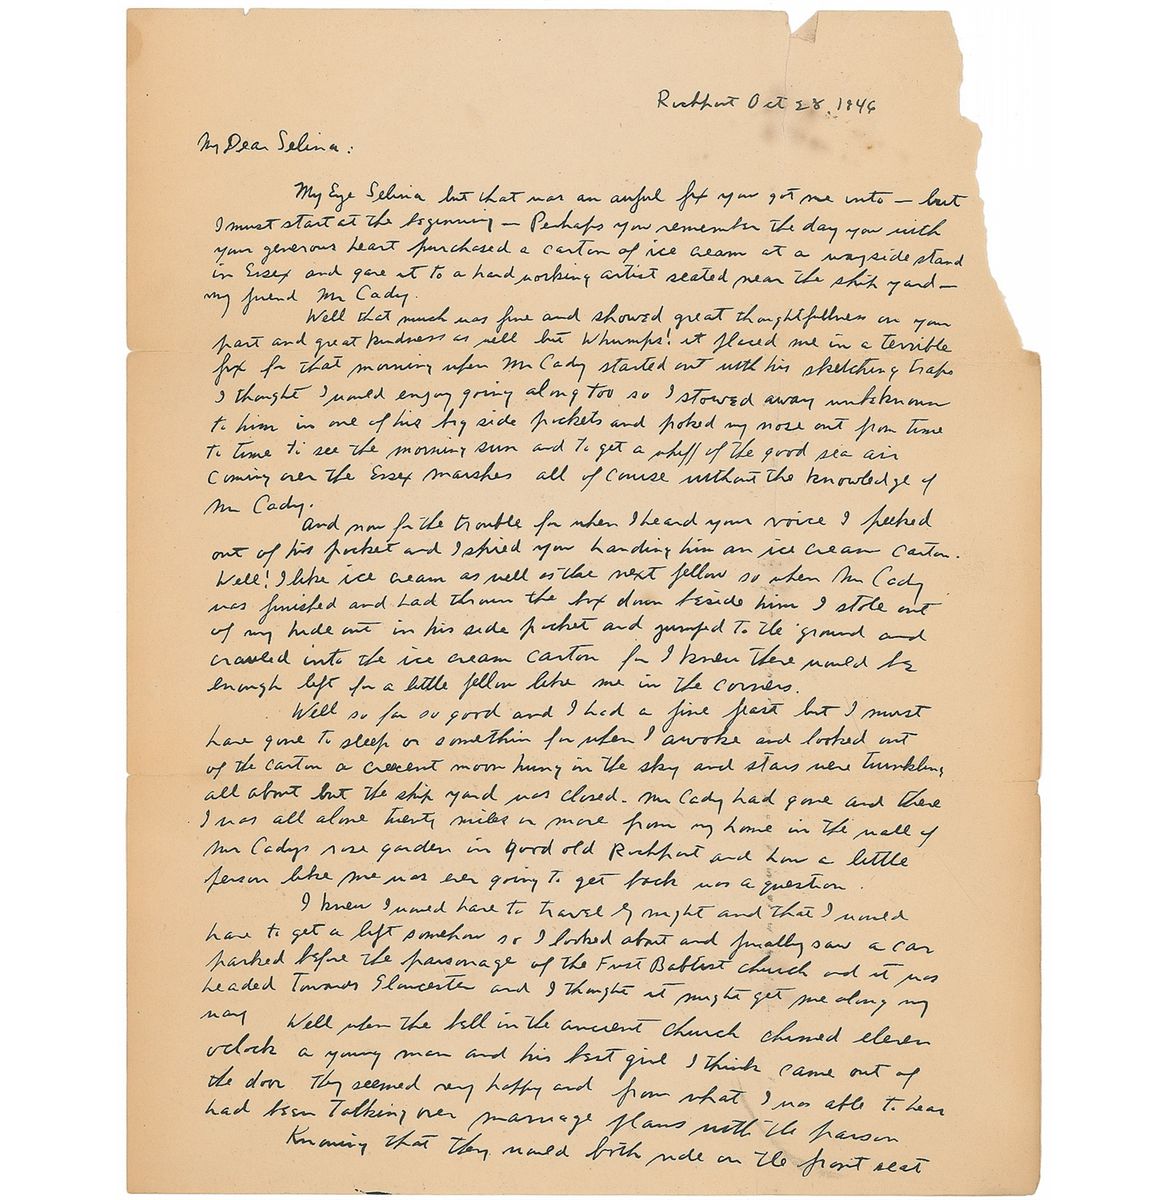 Rockport Oct 28, 1946
My Dear Selina:
My Eye Selina but that was an awful fix you got me into — but
I must start at the beginning — Perhaps you remember the day you with
your generous heart purchased a carton of ice cream at a wayside stand
in Essex and gave it to a hard working artist seated near the ship yard —
my friend Mr Cady.
Well that much was fine and showed great thoughtfullness on your
part and great kindness as well but Whumps! it placed me in a terrible
fix for that morning when Mr Cady started out with his sketching traps
I thought I would enjoy going along too so I stowed away unbknown
to him in one of his big side pockets and poked my nose out from time
to time to see the morning sun and to get a whiff of the good sea air
coming over the Essex marshes all of course without the knowledge of
Mr Cady.
And now for the trouble for when I heard your voice I peeked
out of his pocket and I spied you handing him an ice cream carton.
Well! I like ice cream as well as the next fellow so when Mr Cady
was finished and had thrown the box down beside him I stole out
of my hide out in his side pocket and jumped to the ground and
crawled into the ice cream carton for I knew there would be
enough left for a little fellow like me in the corners.
Well so far so good and I had a fine feast but I must
have gone to sleep or somethin for when I awoke and looked out
of the carton a crecent moon hung in the sky and stars were twinkling
all about but the ship yard was closed. Mr Cady had gone and there
I was all alone twenty miles or more from my home in the wall of
Mr Cadys rose garden in good old Rockport and how a little
person like me was ever going to get back was a question.
I knew I would have to travel by night and that I would
have to get a lift somehow so I looked about and finally saw a car
parked before the parsonage of the First Babtist church and it was
headed towards Gloucester and I thought it might get me along my
way
Well when the bell in the ancient church chimed eleven
oclock a young man and his best girl I think came out of
the door They seemed very happy and from what I was able to hear
had been talking over marriage plans with the parson
Knowing that they would both ride on the front seat